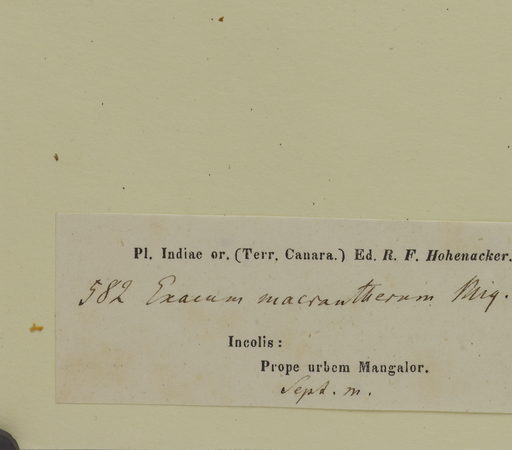 Pl. Indiae or. (Terr. Canara.) Ed. R. F. Hohenacker.
582 Exacum macrantherum Miq.
Incolis:
Prope urbem Mangalor.
Sept. m.